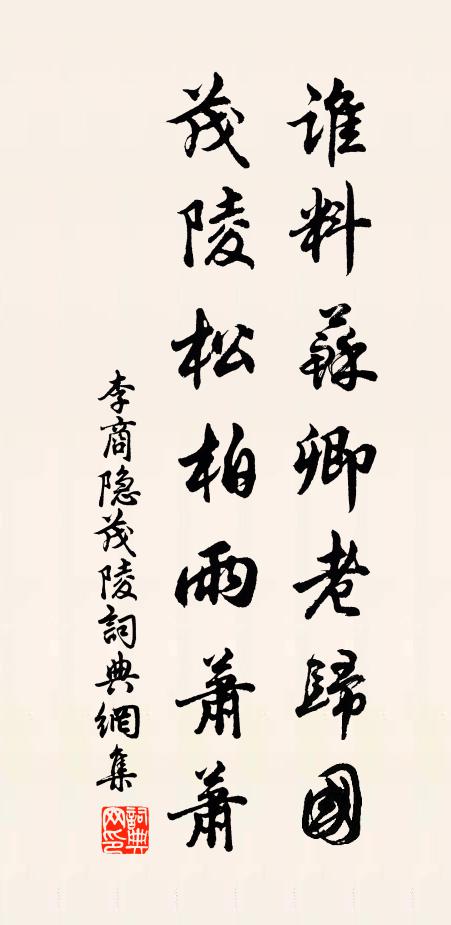 誰料蘇卿老歸國
茂陵松柏雨蕭蕭
李商隐茂陵詞典網集
詞典網印